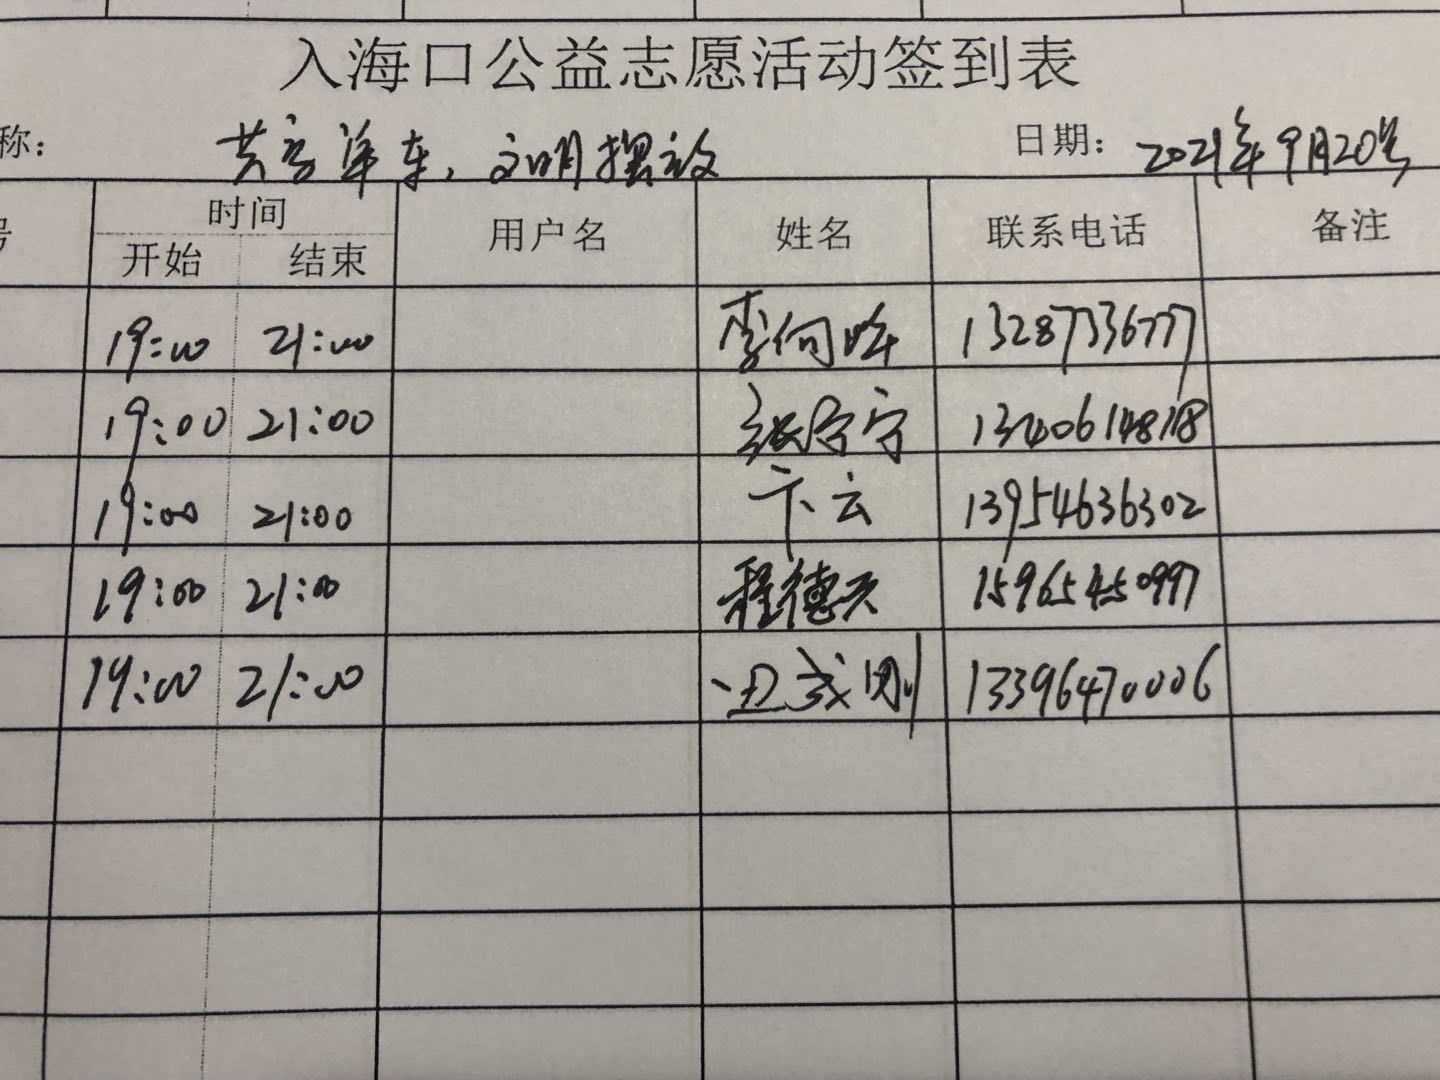 入海口公益志愿活动签到表
称: 共享单车，文明摆放 日期: 2021年9月20号
号 时间 用户名 姓名 联系电话 备注
开始 结束
19:00 21:00 李向晖 13287336777
19:00 21:00 张宁宁 13406148118
19:00 21:00 卞云 13954636302
19:00 21:00 程德兴 15965450997
19:00 21:00 刚 13396470006